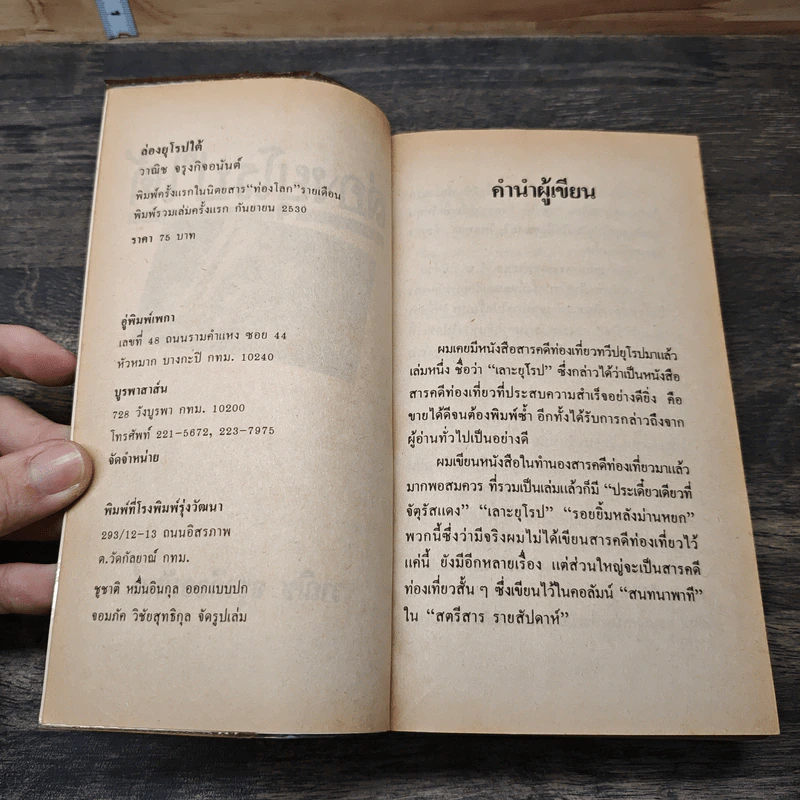 ล่องยุโรปใต้
วาณิช จรุงกิจอนันต์
พิมพ์ครั้งแรกในนิตยสาร“ท่องโลก”รายเดือน
พิมพ์รวมเล่มครั้งแรก กันยายน 2530
ราคา 75 บาท
อู่พิมพ์เพกา
เลขที่ 48 ถนนรามคำแหง ซอย 44
หัวหมาก บางกะปิ กทม. 10240
บูรพาสาส์น
728 วังบูรพา กทม. 10200
โทรศัพท์ 221-5672, 223-7975
จัดจำหน่าย
พิมพ์ที่โรงพิมพ์รุ่งวัฒนา
293/12-13 ถนนอิสรภาพ
ต.วัดกัลยาณ์ กทม.
ชูชาติ หมื่นอินกุล ออกแบบปก
จอมภัค วิชัยสุทธิกุล จัดรูปเล่ม
คำนำผู้เขียน
ผมเคยมีหนังสือสารคดีท่องเที่ยวทวีปยุโรปมาแล้ว
เล่มหนึ่ง ชื่อว่า “เลาะยุโรป” ซึ่งกล่าวได้ว่าเป็นหนังสือ
สารคดีท่องเที่ยวที่ประสบความสำเร็จอย่างดียิ่ง คือ
ขายได้ดีจนต้องพิมพ์ซ้ำ อีกทั้งได้รับการกล่าวถึงจาก
ผู้อ่านทั่วไปเป็นอย่างดี
ผมเขียนหนังสือในทำนองสารคดีท่องเที่ยวมาแล้ว
มากพอสมควร ที่รวมเป็นเล่มแล้วก็มี “ประเดี๋ยวเดียวที่
จัตุรัสแดง” “เลาะยุโรป” “รอยยิ้มหลังม่านหยก”
พวกนี้ซึ่งว่ามีจริงผมไม่ได้เขียนสารคดีท่องเที่ยวไว้
แค่นี้ ยังมีอีกหลายเรื่อง แต่ส่วนใหญ่จะเป็นสารคดี
ท่องเที่ยวสั้น ๆ ซึ่งเขียนไว้ในคอลัมน์ “สนทนาพาที”
ใน “สตรีสาร รายสัปดาห์”